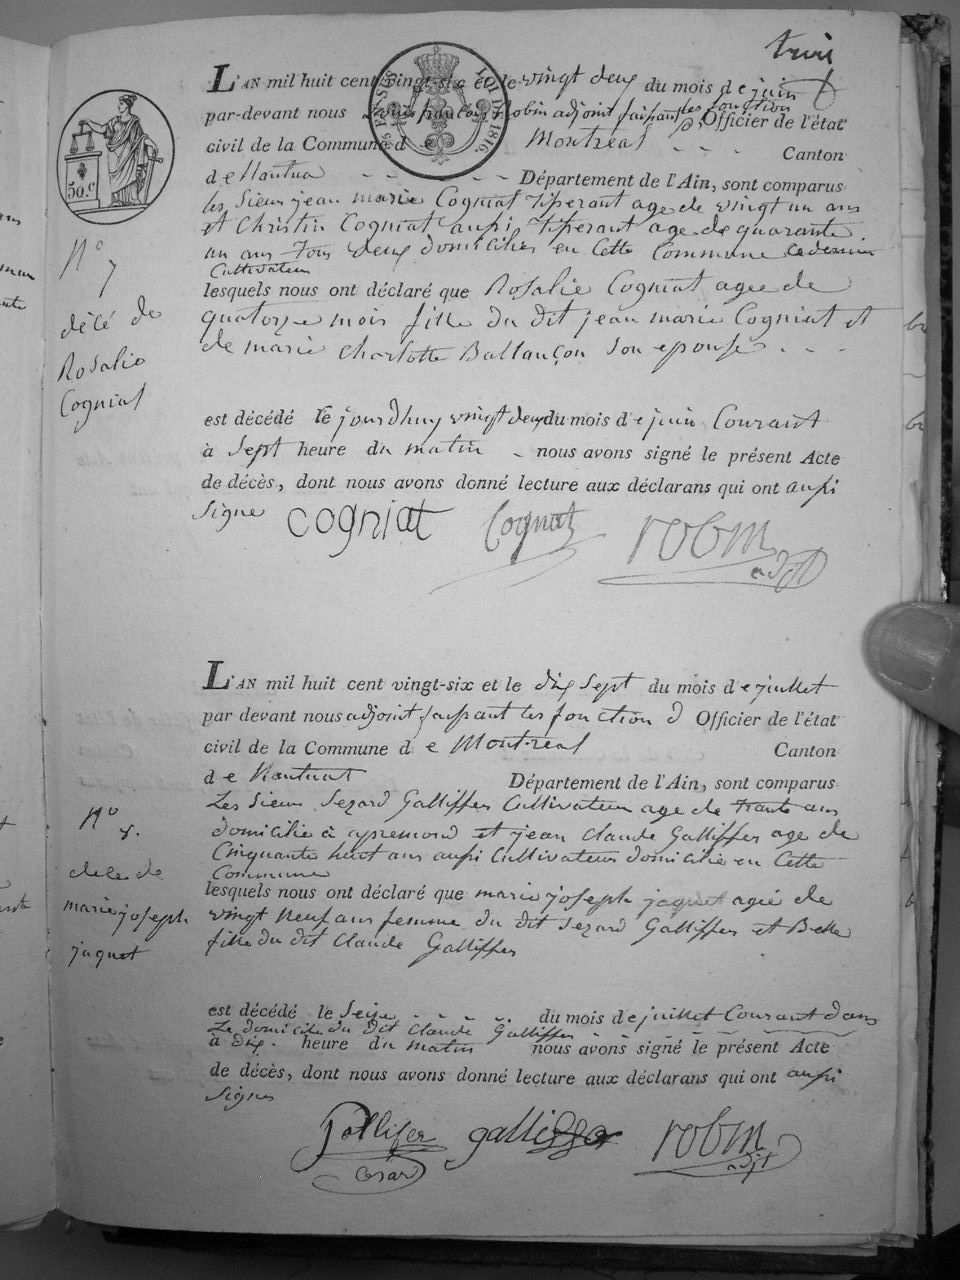 trois
L'AN mil huit cent vingt-six et le vingt deux du mois de juin
par-devant nous Louis françois Robin adjoint faisant les fonction d' Officier de l'état
civil de la Commune de Montreal Canton
de Nantua Département de l'Ain, sont comparus
les Sieur jean marie Cogniat tisserant age de vingt un ans
et Christin Cogniat aussi tisserant age de quarante
un ans tous deux domiciliés en cette Commune ce dernier
Cultivateur
lesquels nous ont déclaré que Rosalie Cogniat agee de
quatorze mois fille du dit jean marie Cogniat et
de marie charlotte Ballançon son epouse
est décédé le jourdhuy vingt deux du mois de juin Courant
à Sept heure du matin nous avons signé le présent Acte
de décès, dont nous avons donné lecture aux déclarans qui ont aussi
signe
cogniat Cogniat robin
adjt
N°
7
décé de
Rosalie
Cogniat
50.c
LOI DE 1816.
L'AN mil huit cent vingt-six et le dix Sept du mois de juillet
par devant nous adjoint faissant les fonction d Officier de l'état
civil de la Commune de Montreal Canton
de Nantuat Département de l'Ain, sont comparus
Les Sieur Sezard Galliffes Cultivateur age de trante ans
domicilié à apremond et jean Claude Galliffes age de
Cinquante huit ans aussi Cultivateur domicilié en Cette
Commune
lesquels nous ont déclaré que marie joseph jaquet ageé de
vingt neuf ans femme du dit Sezard Galliffes et Belle
fille du dit Claude Galliffes
est décédé le Seize du mois de juillet Courant dans
Le domicile du dit Claude Galliffes
à dix heure du matin nous avons signé le présent Acte
de décès, dont nous avons donné lecture aux déclarans qui ont aussi
signes
Gallifer
Cesar
robin
adjt
N°
8.
décé de
marie joseph
jaquet